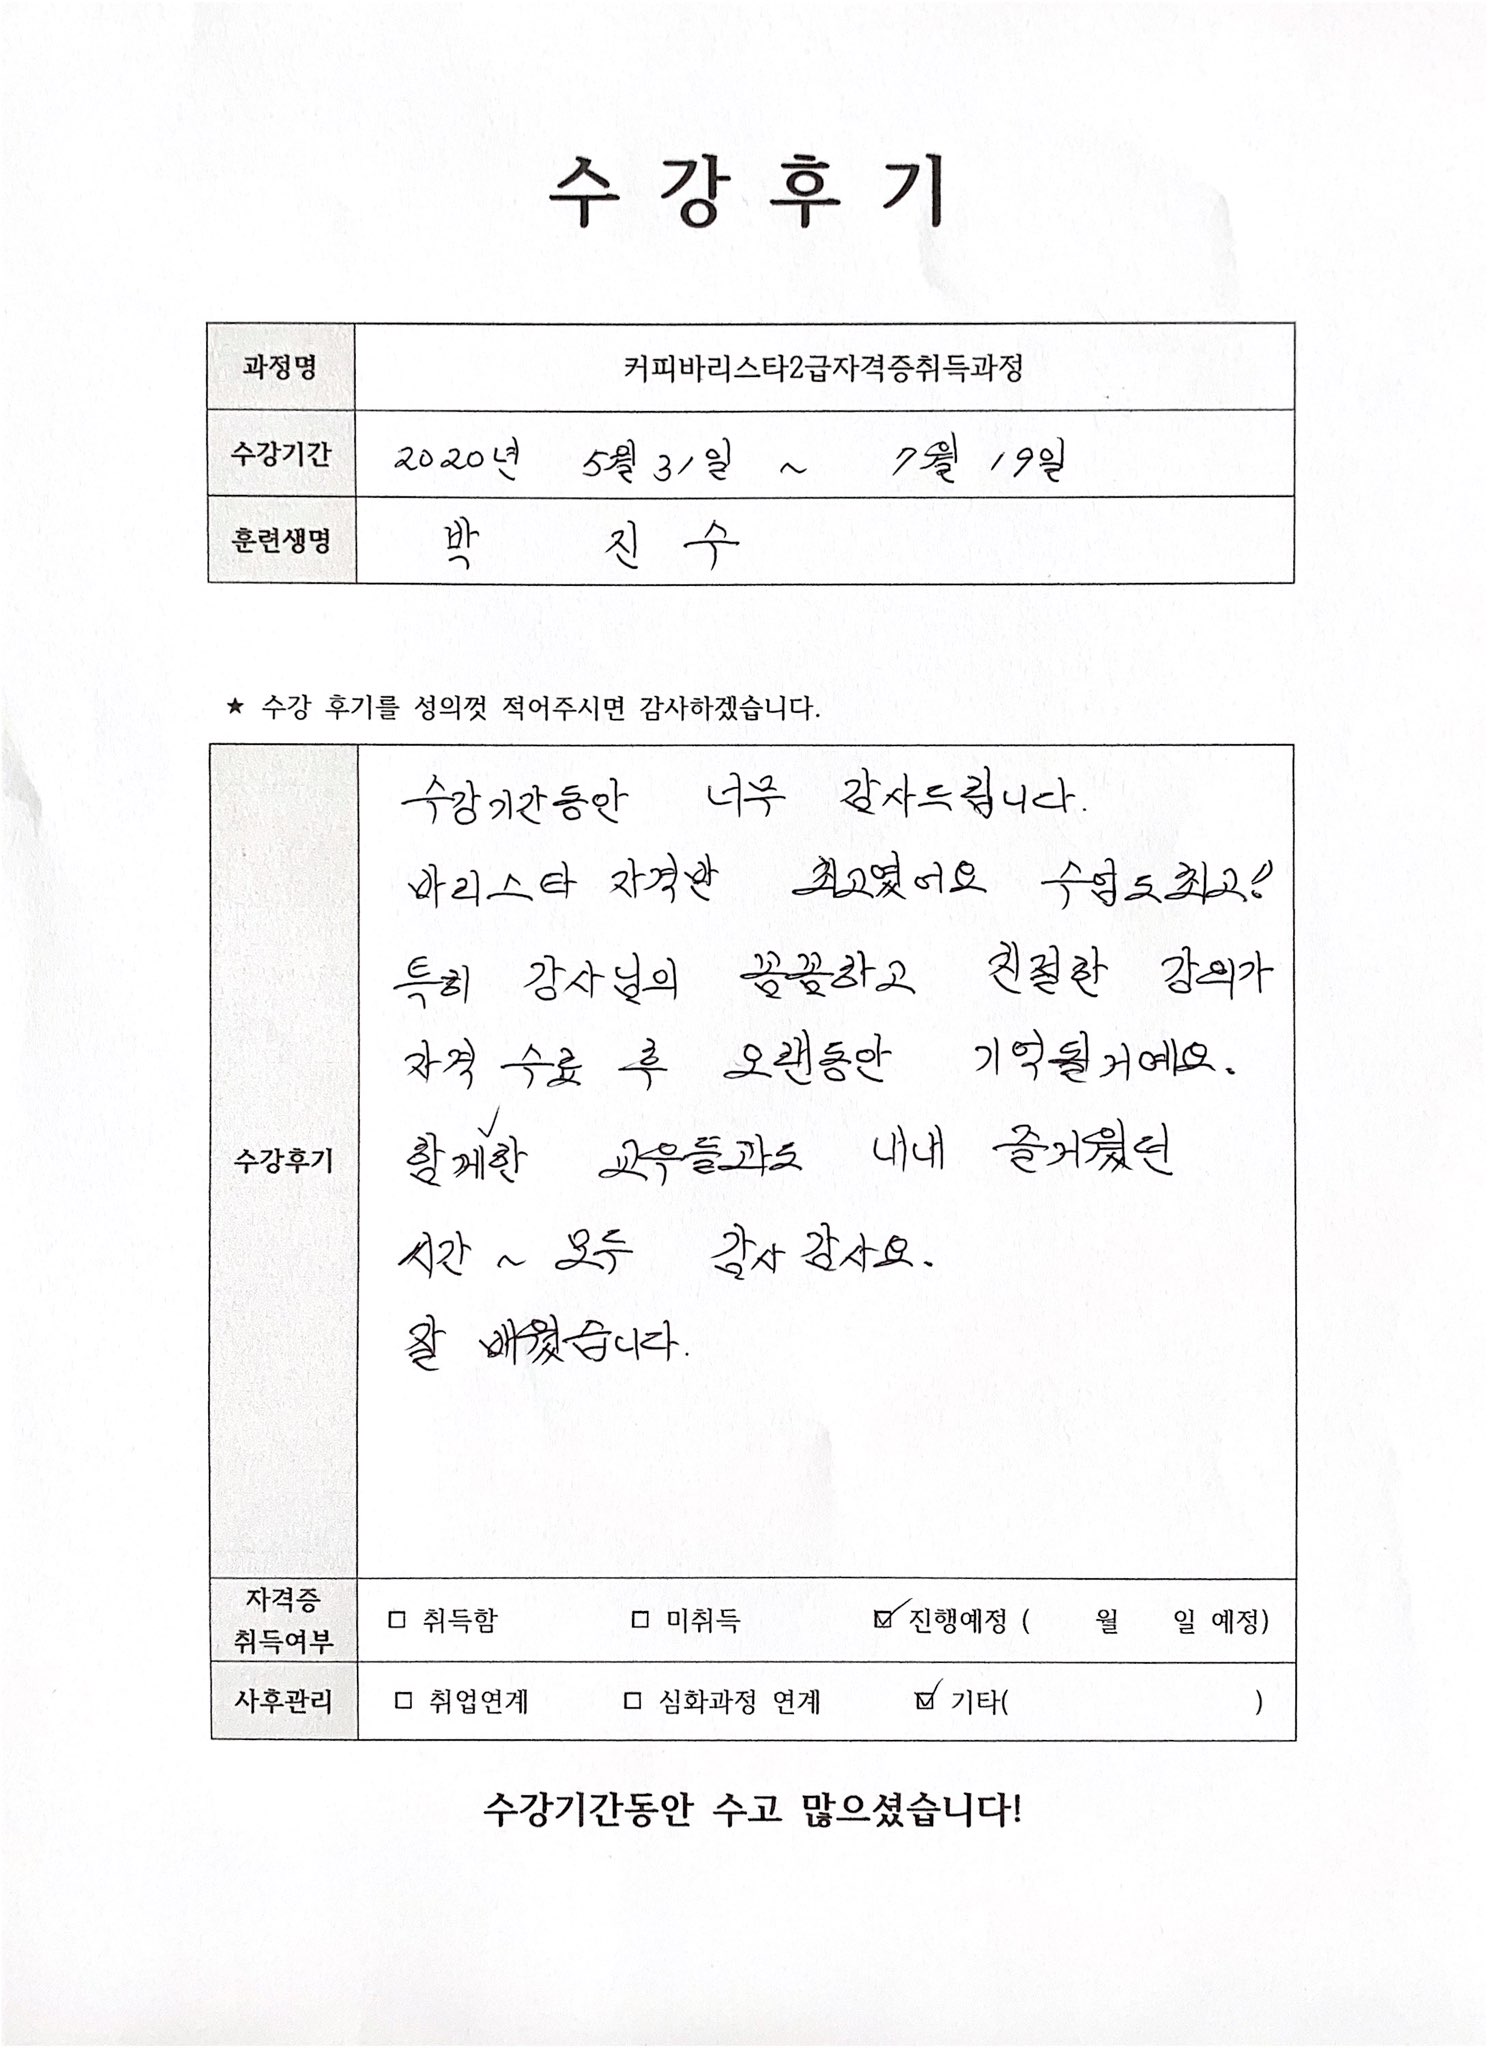 수 강 후 기
과정명 커피바리스타2급자격증취득과정
수강기간 2020년 5월 31일 ~ 7월 19일
훈련생명 박 진 수
★ 수강 후기를 성의껏 적어주시면 감사하겠습니다.
수강기간동안 너무 감사드립니다.
바리스타 자격반 최고였어요 수업도최고!!
특히 강사님의 꼼꼼하고 친절한 강의가
자격 수료 후 오랜동안 기억될거예요.
수강후기 함께한 교우들과도 내내 즐거웠던
시간 ~ 모두 감사 감사요.
잘 배웠습니다.
자격증
취득여부 □ 취득함 □ 미취득 ☑ 진행예정 ( 월 일 예정)
사후관리 □ 취업연계 □ 심화과정 연계 ☑ 기타( )
수강기간동안 수고 많으셨습니다!